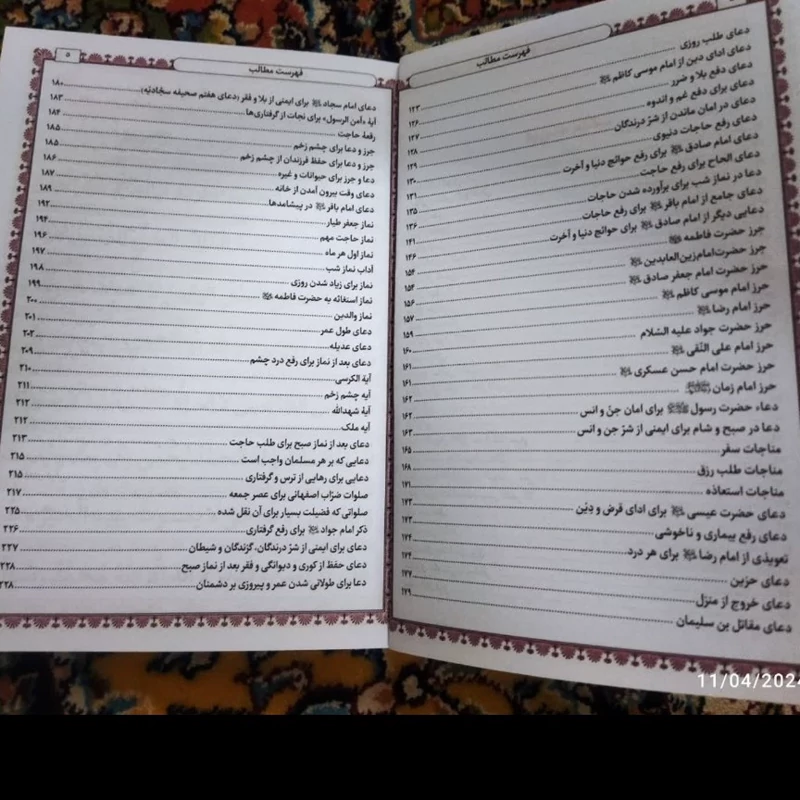 فهرست مطالب
دعای طلب روزی
دعای ادای دین از امام موسی کاظم ۱۲۳
دعای دفع بلا و ضرر ۱۲۶
دعای برای دفع غم و اندوه ۱۲۷
دعای در امان ماندن از شرّ درندگان ۱۲۸
دعای رفع حاجات دنیوی ۱۲۹
دعای امام صادق برای رفع حوائج دنیا و آخرت ۱۳۰
دعای الحاح برای رفع حاجت ۱۳۱
دعا در نماز شب برای برآورده شدن حاجات ۱۳۵
دعای جامع از امام باقر برای رفع حاجات ۱۳۶
دعایی دیگر از امام صادق برای حوائج دنیا و آخرت ۱۴۱
حرز حضرت فاطمه ۱۴۶
حرز حضرت‌امام‌زین‌العابدین ۱۵۴
حرز حضرت امام جعفر صادق ۱۵۴
حرز امام موسی کاظم ۱۵۶
حرز امام رضا ۱۵۷
حرز حضرت جواد علیه السّلام ۱۵۹
حرز امام علی النّقی ۱۶۰
حرز حضرت امام حسن عسکری ۱۶۱
حرز امام زمان ۱۶۱
دعاء حضرت رسول برای امان جنّ و انس ۱۶۲
دعا در صبح و شام برای ایمنی از شرّ جن و انس ۱۶۲
مناجات سفر ۱۶۵
مناجات طلب رزق ۱۶۸
مناجات استعاذه ۱۷۱
دعای حضرت عیسی برای ادای قرض و دِیْن ۱۷۳
دعای رفع بیماری و ناخوشی ۱۷۳
تعویذی از امام رضا برای هر درد ۱۷۴
دعای حزین ۱۷۴
دعای خروج از منزل ۱۷۷
دعای مقاتل بن سلیمان ۱۷۹
فهرست مطالب
۵
دعای امام سجاد برای ایمنی از بلا و فقر (دعای هفتم صحیفه سجّادیّه) ۱۸۰
آیۀ «آمن الرسول» برای نجات از گرفتاری‌ها ۱۸۳
رقعۀ حاجت ۱۸۴
حرز و دعا برای چشم زخم ۱۸۵
حرز و دعا برای حفظ فرزندان از چشم زخم ۱۸۵
دعا و حرز برای حیوانات و غیره ۱۸۶
دعای وقت بیرون آمدن از خانه ۱۸۷
دعای امام باقر در پیشامدها ۱۸۹
نماز جعفر طیار ۱۹۲
نماز حاجت مهم ۱۹۴
نماز اول هر ماه ۱۹۶
آداب نماز شب ۱۹۷
نماز برای زیاد شدن روزی ۱۹۸
نماز استغاثه به حضرت فاطمه ۱۹۹
نماز والدین ۲۰۰
دعای طول عمر ۲۰۱
دعای عدیله ۲۰۲
دعای بعد از نماز برای رفع درد چشم ۲۰۹
آیۀ الکرسی ۲۱۰
آیه چشم زخم ۲۱۱
آیۀ شهدالله ۲۱۲
آیه ملک ۲۱۲
دعای بعد از نماز صبح برای طلب حاجت ۲۱۳
دعایی که بر هر مسلمان واجب است ۲۱۵
دعایی برای رهایی از ترس و گرفتاری ۲۱۵
صلوات ضرّاب اصفهانی برای عصر جمعه ۲۱۷
صلواتی که فضیلت بسیار برای آن نقل شده ۲۲۵
ذکر امام جواد برای رفع گرفتاری ۲۲۶
دعای برای ایمنی از شرّ درندگان، گزندگان و شیطان ۲۲۷
دعای حفظ از کوری و دیوانگی و فقر بعد از نماز صبح ۲۲۸
دعا برای طولانی شدن عمر و پیروزی بر دشمنان ۲۲۸
11/04/2024